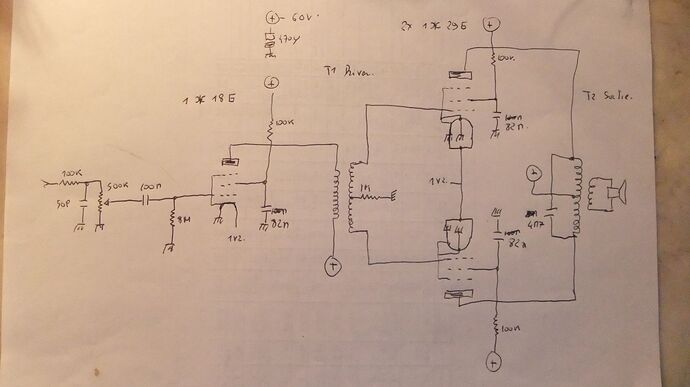 60V.
470µ
2x 1Ж29Б
T1 Driver.
1Ж18Б
100K
100K
100n
82n
T2 Sortie.
100K
500K
100n
50P
8M
1V2.
100n
82n
1M
1V2.
100n
82n
4n7
100K